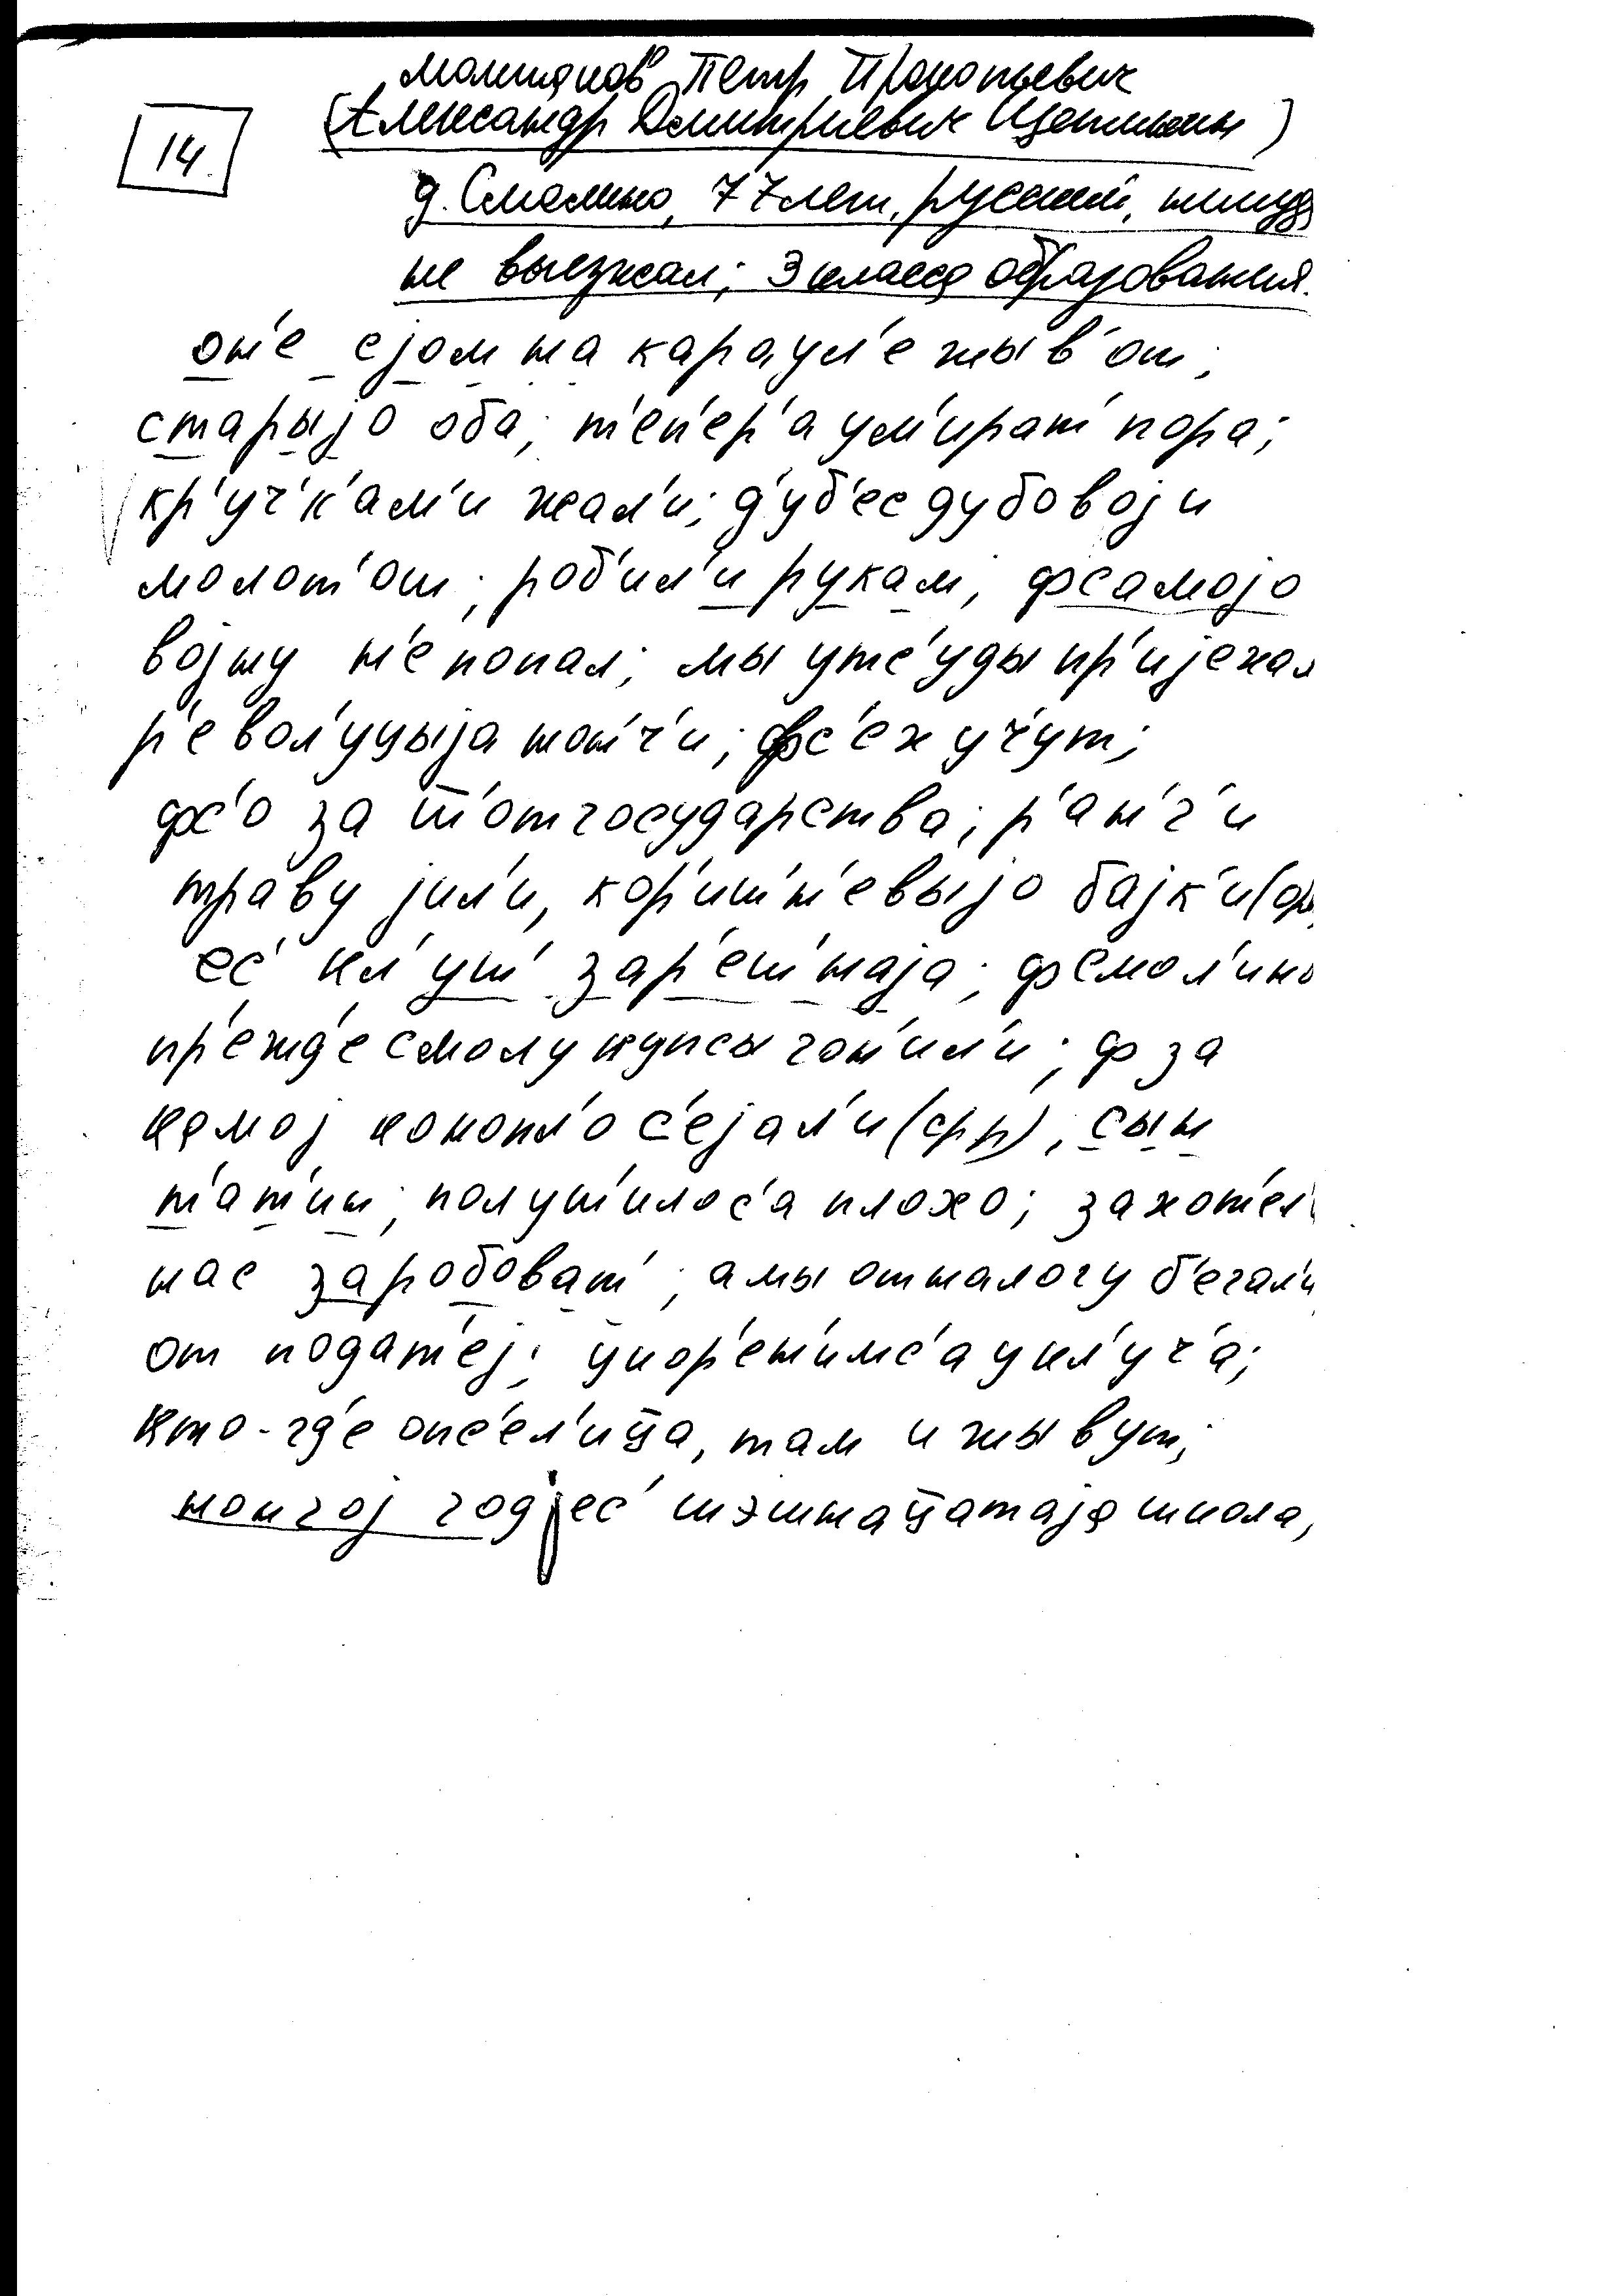 Петр Прокопьевич
(Александр Дмитриевич Щеткин)
14.
д. Смолино, 77 лет, русский,
не выезжал; 3 класса образования.
он'е јом на караул'е жыв'от;
старыјо оба; т'еп'ер'а ум'ират' пора;
кр'уч'к'ам'и жал'и; д'уб'ес дубовој и
молот'ом; роб'ил'и рукам, фсамојо
војну н'е попал; мы уже'уды пр'ијехал
р'евол'уцыја кон'ч'и; фс'ех уч'ут;
фс'о за ш'от государства; р'ан'г'и
траву јил'и, кор'ишн'евыјо бајк'и
ес' кл'уш' зар'еш'наја; фсмол'ино
пр'ежд'е смолу кулсы гон'ил'и; ф за
комој конопл'о с'ејал'и (фр), сын
т'ат'ин; полуш'илос'а плохо; захот'ел'
нас заробоват'; а мы от налогу б'егал'и
от подат'еј; укор'ен'имс'а у кл'уч'а;
кто-гд'е опс'ел'ица, там и жывут;
ној год јес' шэшнацатаја школа,